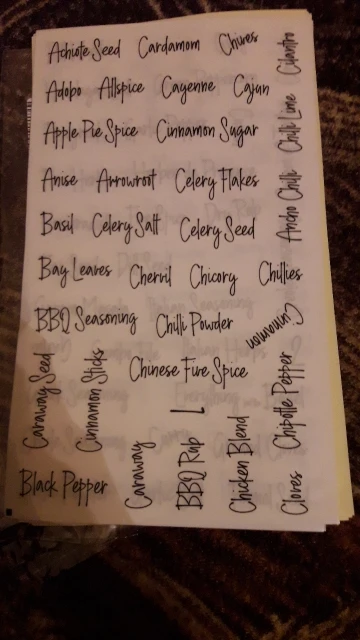 Achiote Seed Cardamom Chives Cilantro
Adobo Allspice Cayenne Cajun
Apple Pie Spice Cinnamon Sugar Chilli Lime
Anise Arrowroot Celery Flakes Ancho Chilli
Basil Celery Salt Celery Seed
Bay Leaves Chervil Chicory Chillies
BBQ Seasoning Chilli Powder Cinnamon
Caraway Seed Cinnamon Sticks Chinese Five Spice Chipotle Pepper
Black Pepper Caraway BBQ Rub Chicken Blend Cloves